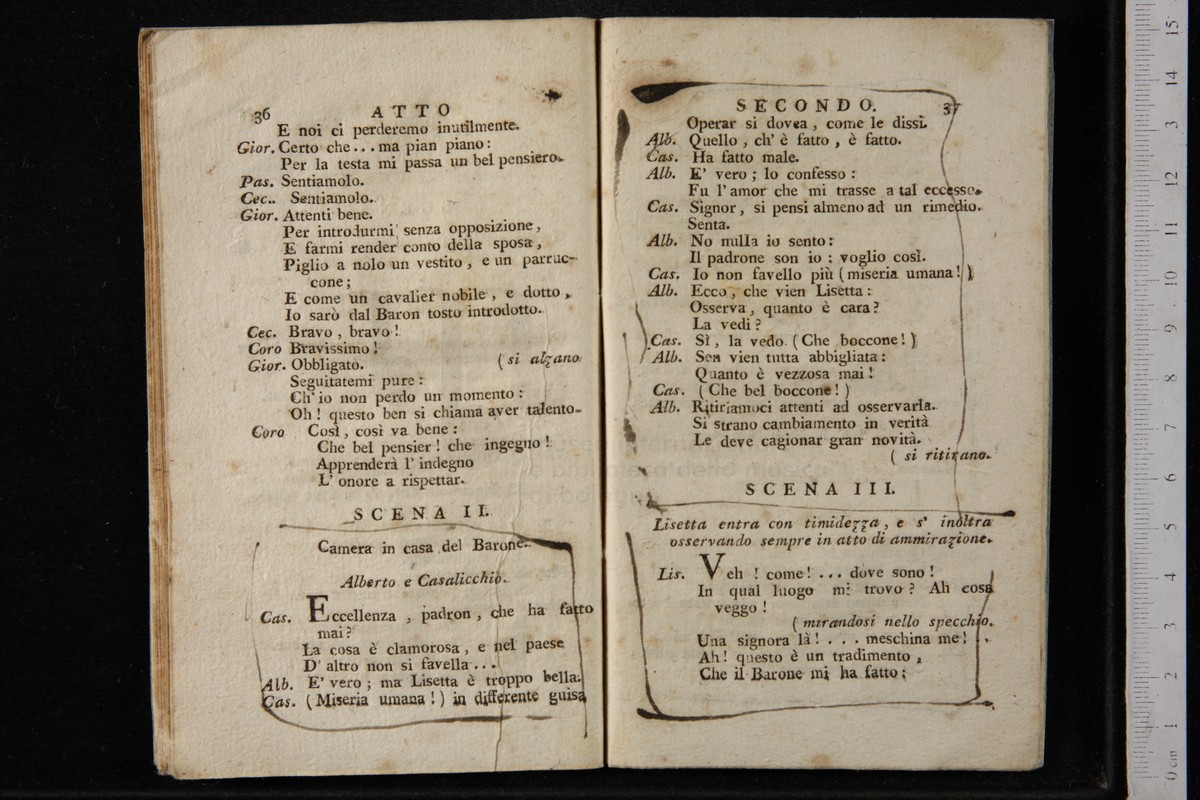 36 ATTO
E noi ci perderemo inutilmente.
Gior. Certo che... ma pian piano:
Per la testa mi passa un bel pensiero.
Pas. Sentiamolo.
Cec.. Sentiamolo.
Gior. Attenti bene.
Per introdurmi senza opposizione,
E farmi render conto della sposa,
Piglio a nolo un vestito, e un parruc-
cone;
E come un cavalier nobile, e dotto,
Io sarò dal Baron tosto introdotto.
Cec. Bravo, bravo!
Coro Bravissimo!
Gior. Obbligato. (si alzano
Seguitatemi pure:
Ch' io non perdo un momento:
Oh! questo ben si chiama aver talento.
Coro Così, così va bene:
Che bel pensier! che ingegno!
Apprenderà l' indegno
L' onore a rispettar.
SCENA II.
Camera in casa del Barone.
Alberto e Casalicchio.
Cas. Eccellenza, padron, che ha fatto
mai?
La cosa è clamorosa, e nel paese
D' altro non si favella...
Alb. E' vero; ma Lisetta è troppo bella.
Cas. (Miseria umana!) in differente guisa
SECONDO. 37
Operar si dovea, come le dissi.
Alb. Quello, ch' è fatto, è fatto.
Cas. Ha fatto male.
Alb. E' vero; lo confesso:
Fu l' amor che mi trasse a tal eccesso.
Cas. Signor, si pensi almeno ad un rimedio.
Senta.
Alb. No nulla io sento:
Il padrone son io: voglio così.
Cas. Io non favello più (miseria umana!)
Alb. Ecco, che vien Lisetta:
Osserva, quanto è cara?
La vedi?
Cas. Sì, la vedo. (Che boccone!)
Alb. Sen vien tutta abbigliata:
Quanto è vezzosa mai!
Cas. (Che bel boccone!)
Alb. Ritiriamoci attenti ad osservarla.
Si strano cambiamento in verità
Le deve cagionar gran novità.
(si ritirano.
SCENA III.
Lisetta entra con timidezza, e s' inoltra
osservando sempre in atto di ammirazione.
Lis. Veh! come!... dove sono!
In qual luogo mi trovo? Ah cosa
veggo!
(mirandosi nello specchio.
Una signora là!... meschina me!..
Ah! questo è un tradimento,
Che il Barone mi ha fatto;
0 cm 1 2 3 4 5 6 7 8 9 10 11 12 13 14 15